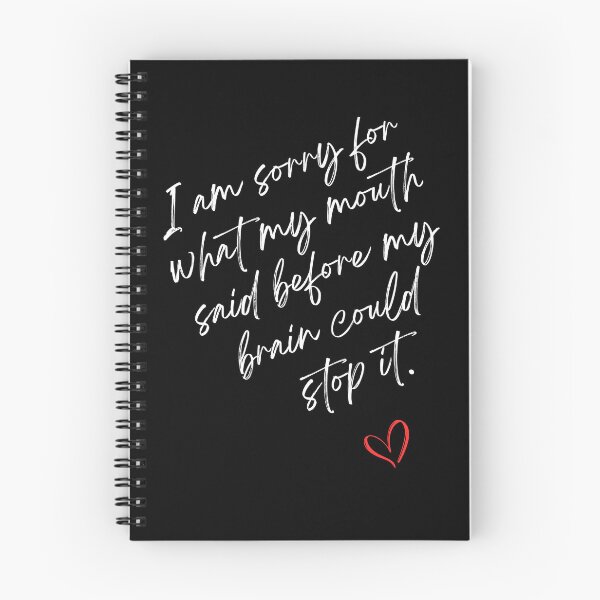 I am sorry for
what my mouth
said before my
brain could
stop it.